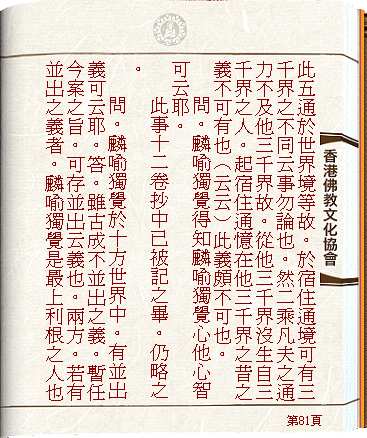 香港佛教文化協會
此五通於世界境等故。於宿住通境可有三
千界之不同云事勿論也。然二乘凡夫之通
力不及他三千界故。從他三千界沒生自三
千界之人。起宿住通憶在他三千界之昔之
義不可有也(云云)此義頗不可也。
問。麟喻獨覺得知麟喻獨覺心他心智
可云耶。
此事十二卷抄中已被記之畢。仍略之
。
問。麟喻獨覺於十方世界中。有並出
義可云耶。答。雖古成不並出之義。暫任
今案之旨。可存並出云義也。兩方。若有
並出之義者。麟喻獨覺是最上利根之人也
第81頁